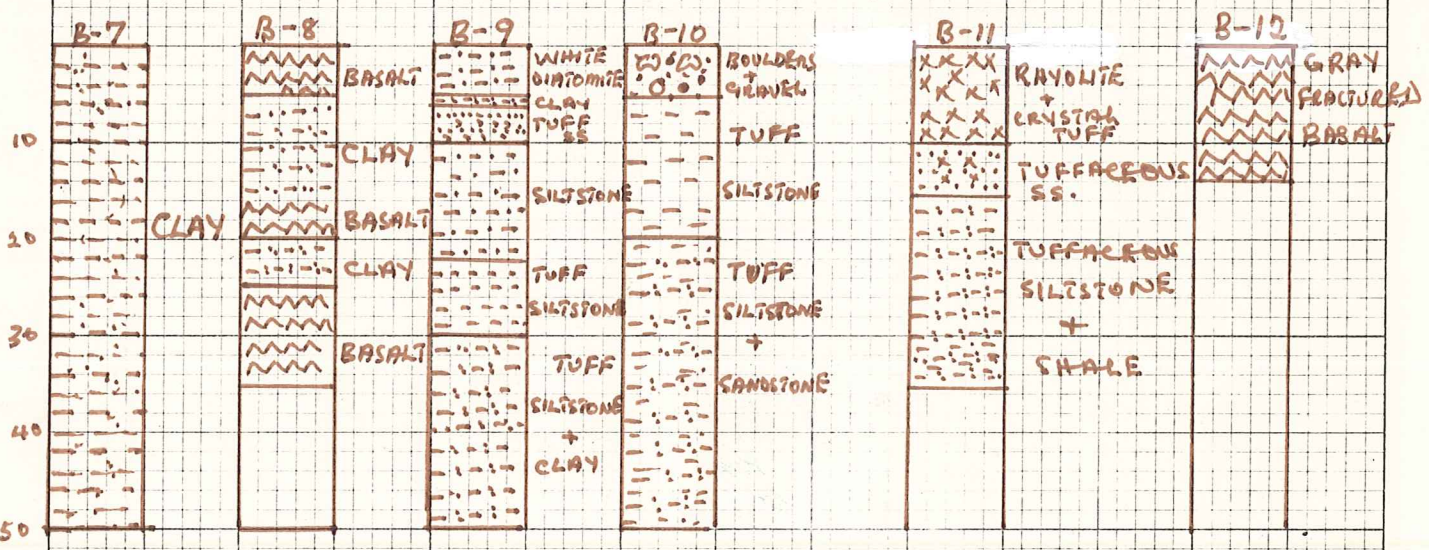 B-7
B-8
B-9
B-10
B-11
B-12
10
20
30
40
50
CLAY
BASALT
CLAY
BASALT
CLAY
BASALT
WHITE
DIATOMITE
CLAY
TUFF
SS
SILTSTONE
TUFF
SILTSTONE
TUFF
SILTSTONE
+
CLAY
BOULDERS
+
GRAVEL
TUFF
SILTSTONE
TUFF
SILTSTONE
+
SANDSTONE
RAYOLITE
+
CRYSTAL
TUFF
TUFFACEOUS
SS.
TUFFACEOUS
SILTSTONE
+
SHALE
GRAY
FRACTURED
BASALT